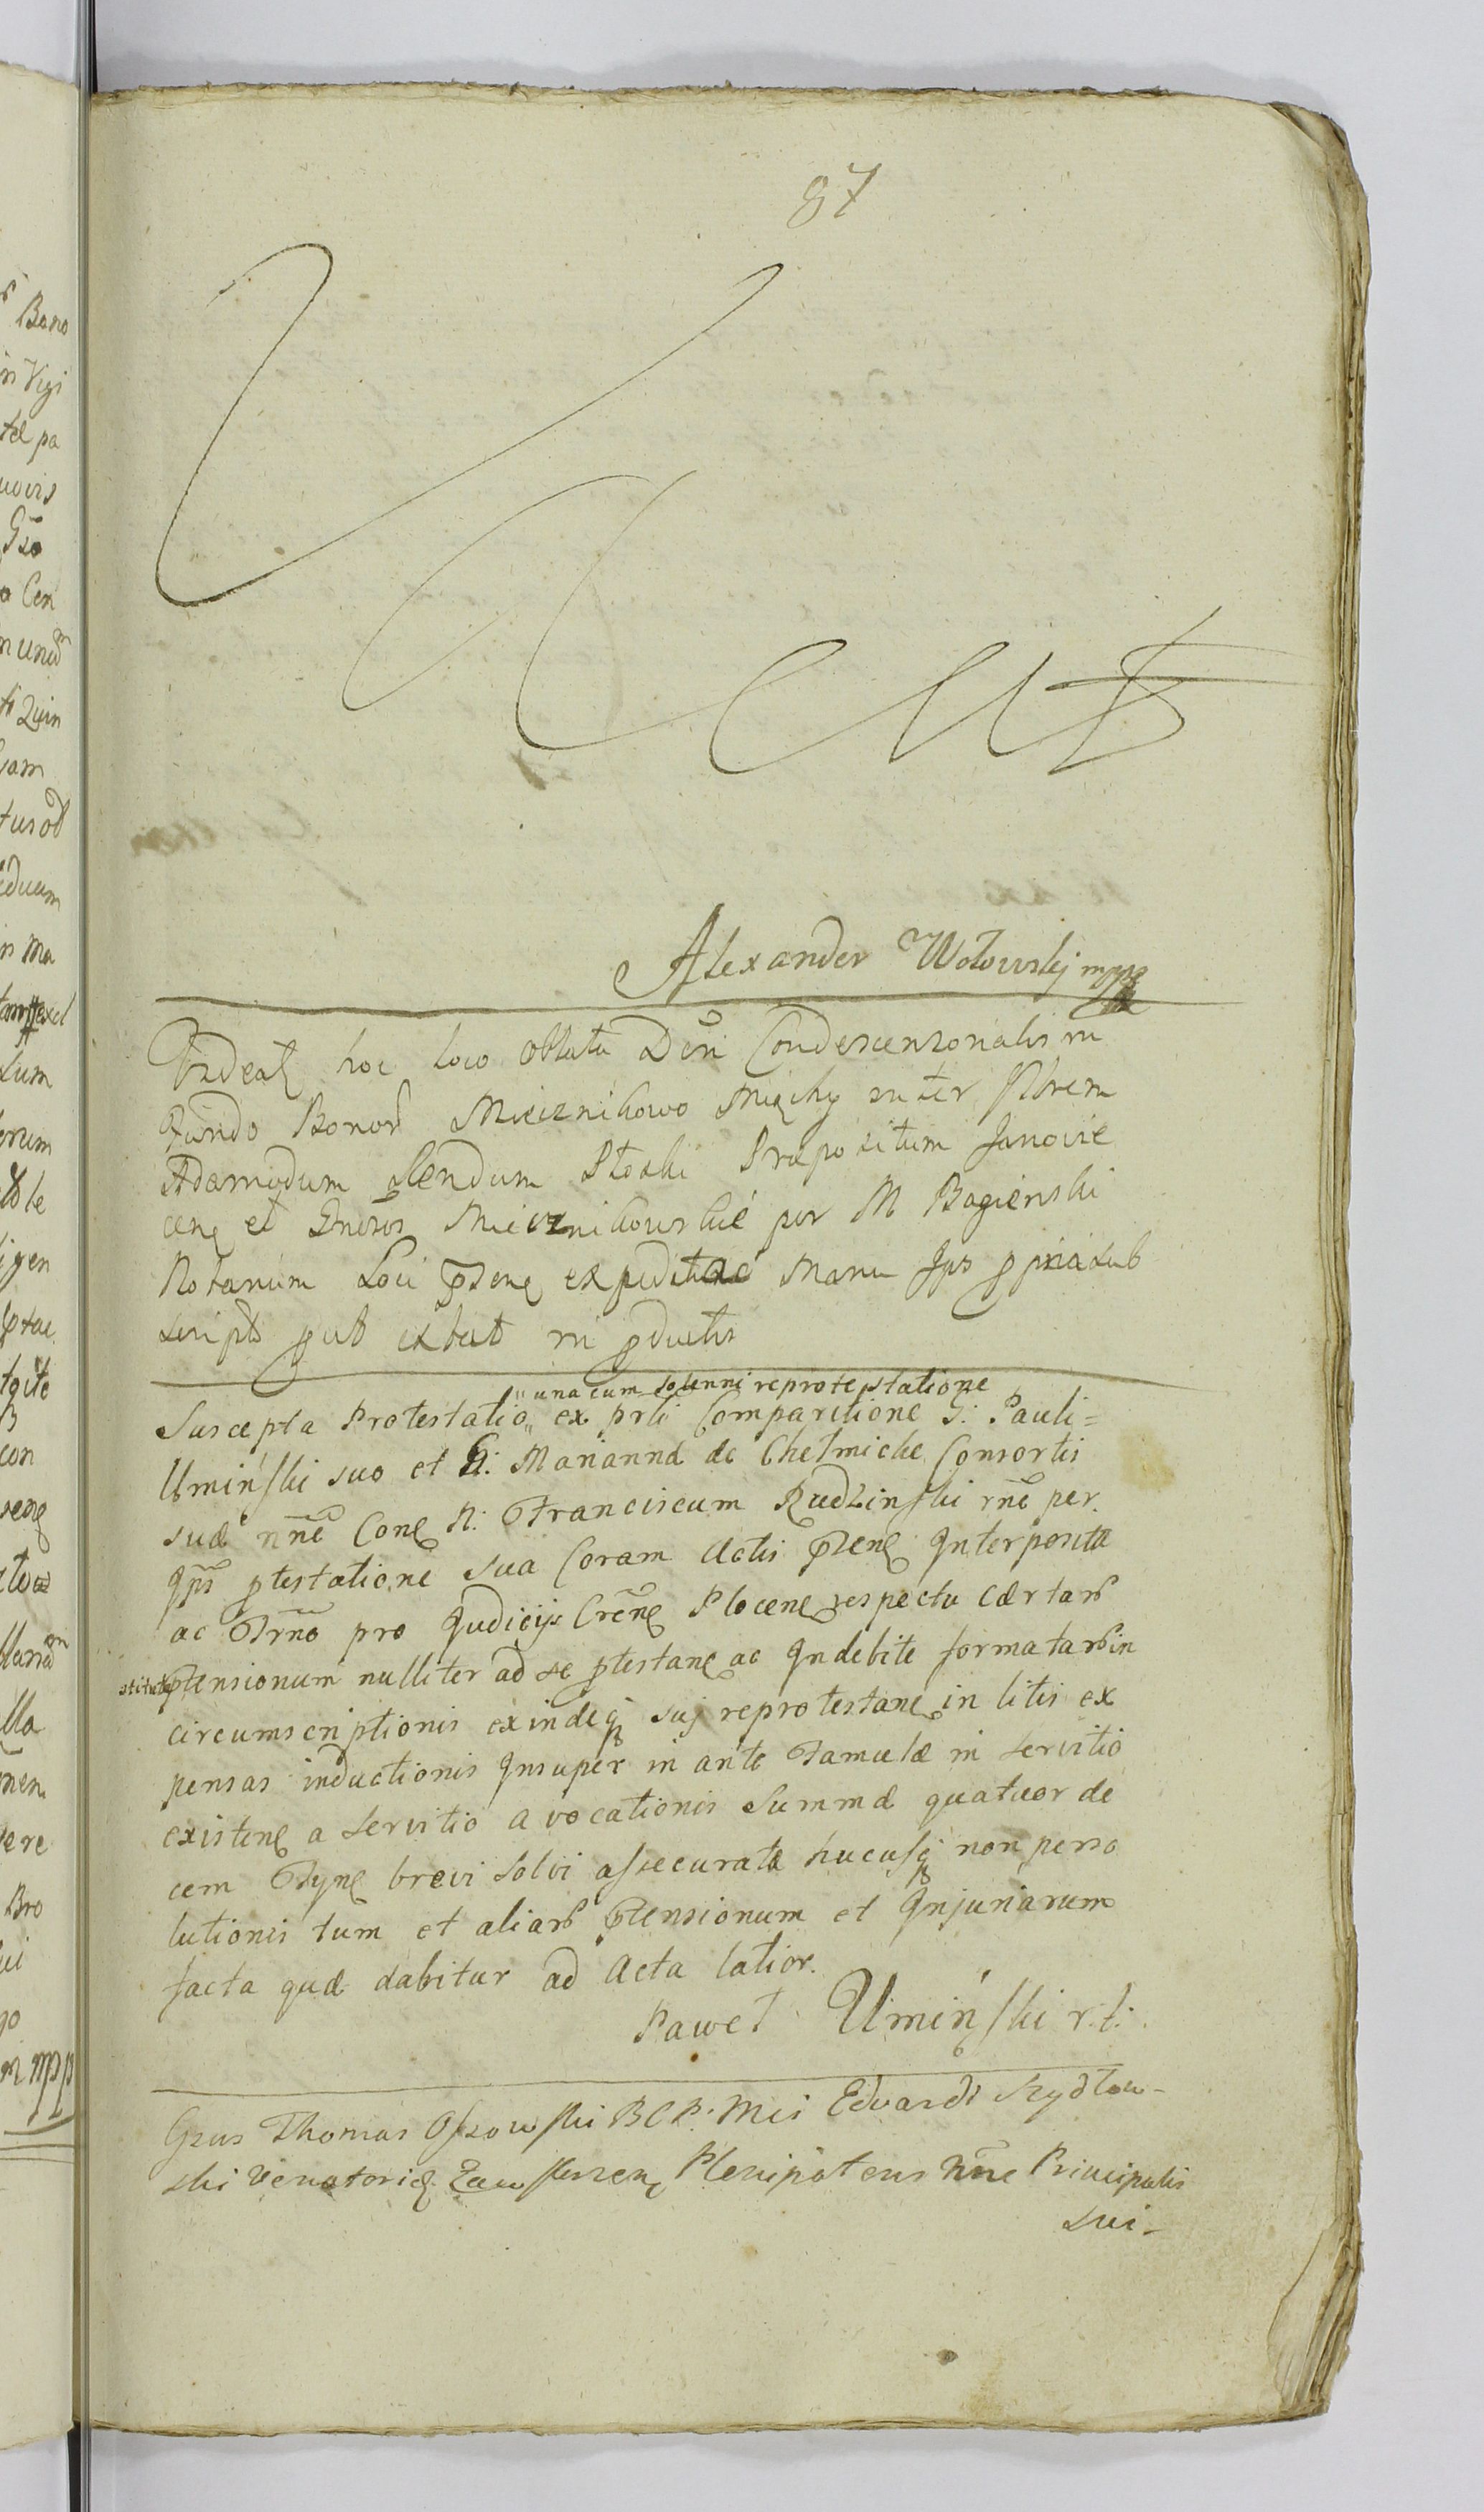 87
Vacat
Alexander Wołowskj mpp
Videat hoc loco oblata Dcri Condescensorialis in
Fundo Bonor Miecznikowo Miąchy inter Nbrem
Admodum Rendum Płoski Præpositum Janovie
cen et Gnosos Miecznikowskie per M Bagienski
Notarium Loci pnsen expeditæ Manu Jps ppria sub
script put extat in pductis
"una cum solenni reprotestatione
Suscepta Protestatio" ex prli Comparitione G: Pauli=
Umiński suo et G: Marianna de Chełmickie Consortis
suæ nne Con N: Franciscum Rudzinski rne per
Jps ptestatione sua Coram Actis pnsen Interposita
ac Trno pro Judicijs Cren Plocen respectu Cærtar
ptensionum nulliter ad se ptestan ac Indebite formatar in
circumscriptionis exindeq suj reprotestan in litis ex
pensas inductionis Insuper in ante Famulæ in servitio
existen a servitio avocationis Summæ quatuor de
cem Tyn brevi solvi assecuratæ hucusq non perso
lutionis tum et aliar ptensionum et Injuriarum
facta quæ dabitur ad Acta latior.
Paweł Umiński r.t:
Gsus Thomas Ossowski BCP. Mci Edvardi Szydłow-
ski Venatorid Plenipotens nne Principalis
sui-